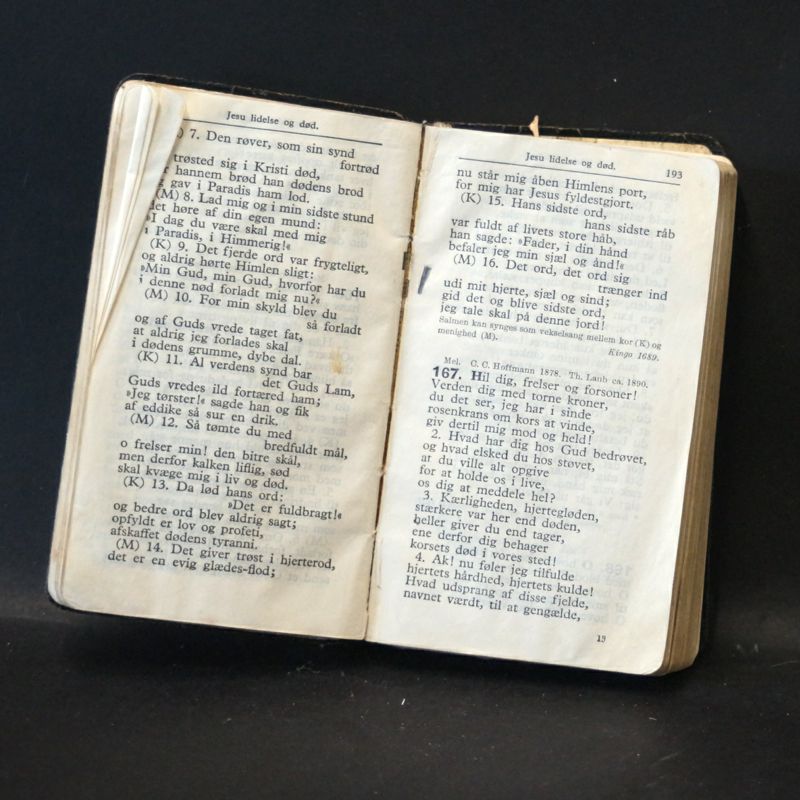 Jesu lidelse og død.
7. Den røver, som sin synd
fortrød
trøsted sig i Kristi død,
hannem brød han dødens brod
gav i Paradis ham lod.
(M) 8. Lad mig og i min sidste stund
det høre af din egen mund:
»I dag du være skal med mig
i Paradis, i Himmerig!«
(K) 9. Det fjerde ord var frygteligt,
og aldrig hørte Himlen sligt:
»Min Gud, min Gud, hvorfor har du
i denne nød forladt mig nu?«
(M) 10. For min skyld blev du
så forladt
og af Guds vrede taget fat,
at aldrig jeg forlades skal
i dødens grumme, dybe dal.
(K) 11. Al verdens synd bar
det Guds Lam,
Guds vredes ild fortæred ham;
»Jeg tørster!« sagde han og fik
af eddike så sur en drik.
(M) 12. Så tømte du med
bredfuldt mål,
o frelser min! den bitre skål,
men derfor kalken liflig, sød
skal kvæge mig i liv og død.
(K) 13. Da lød hans ord:
»Det er fuldbragt!«
og bedre ord blev aldrig sagt;
opfyldt er lov og profeti,
afskaffet dødens tyranni.
(M) 14. Det giver trøst i hjerterod,
det er en evig glædes-flod;
Jesu lidelse og død. 193
nu står mig åben Himlens port,
for mig har Jesus fyldestgjort.
(K) 15. Hans sidste ord,
hans sidste råb
var fuldt af livets store håb,
han sagde: »Fader, i din hånd
befaler jeg min sjæl og ånd!«
(M) 16. Det ord, det ord sig
trænger ind
udi mit hjerte, sjæl og sind;
gid det og blive sidste ord,
jeg tale skal på denne jord!
Salmen kan synges som vekselsang mellem kor (K) og
menighed (M).
Kingo 1689.
Mel. C. C. Hoffmann 1878. Th. Laub ca. 1890.
167. Hil dig, frelser og forsoner!
Verden dig med torne kroner,
du det ser, jeg har i sinde
rosenkrans om kors at vinde,
giv dertil mig mod og held!
2. Hvad har dig hos Gud bedrøvet,
og hvad elsked du hos støvet,
at du ville alt opgive
for at holde os i live,
os dig at meddele hel?
3. Kærligheden, hjertegløden,
stærkere var her end døden,
heller giver du end tager,
ene derfor dig behager
korsets død i vores sted!
4. Ak! nu føler jeg tilfulde
hjertets hårdhed, hjertets kulde!
Hvad udsprang af disse fjelde,
navnet værdt, til at gengælde,
13